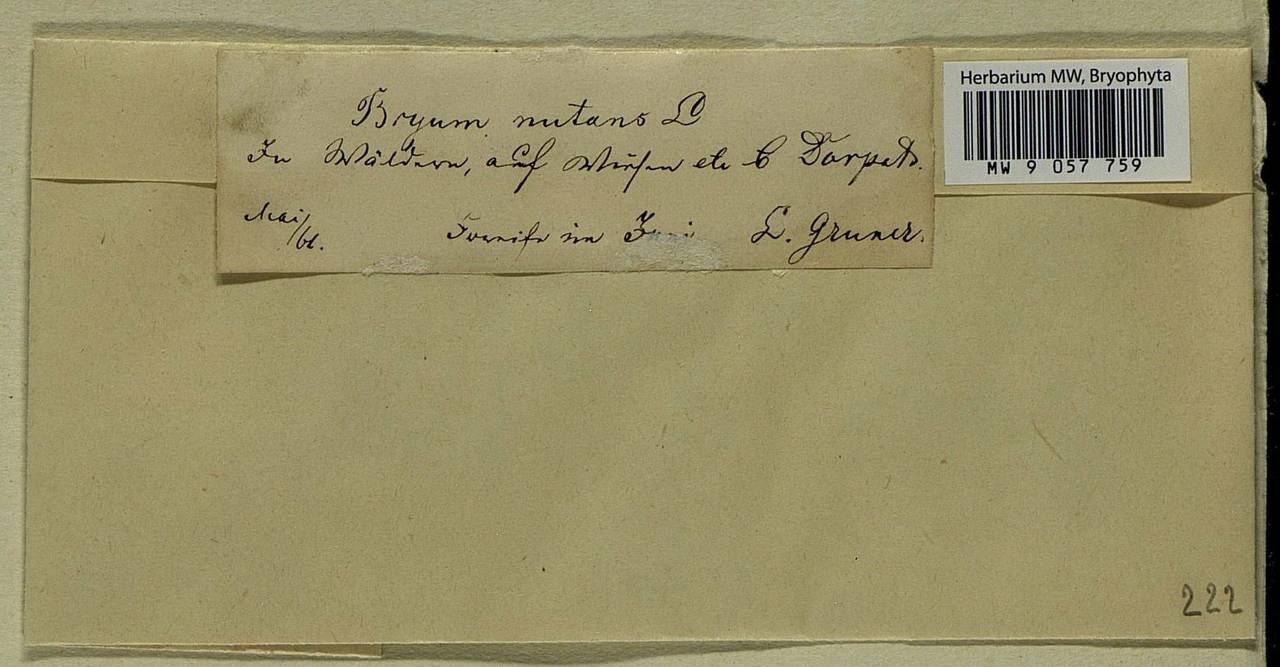 Herbarium MW, Bryophyta
MW 9 057 759
Bryum nutans L
In Wäldern, auf Wiesen etc b Dorpat.
Mai/61.
im Juni L. Gruner.
222